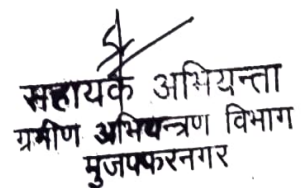 सहायक अभियन्ता
ग्रामीण अभियन्त्रण विभाग
मुजफ्फरनगर